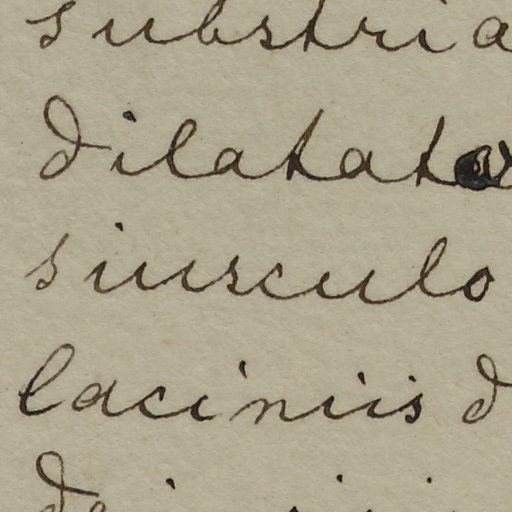 substria
dilatato
siusculo
laciniis d